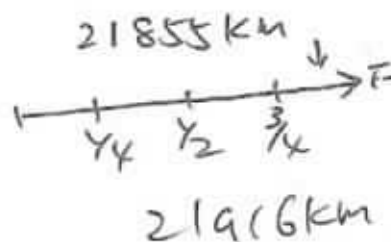 21855 km
1/4 1/2 3/4 F
21916 km